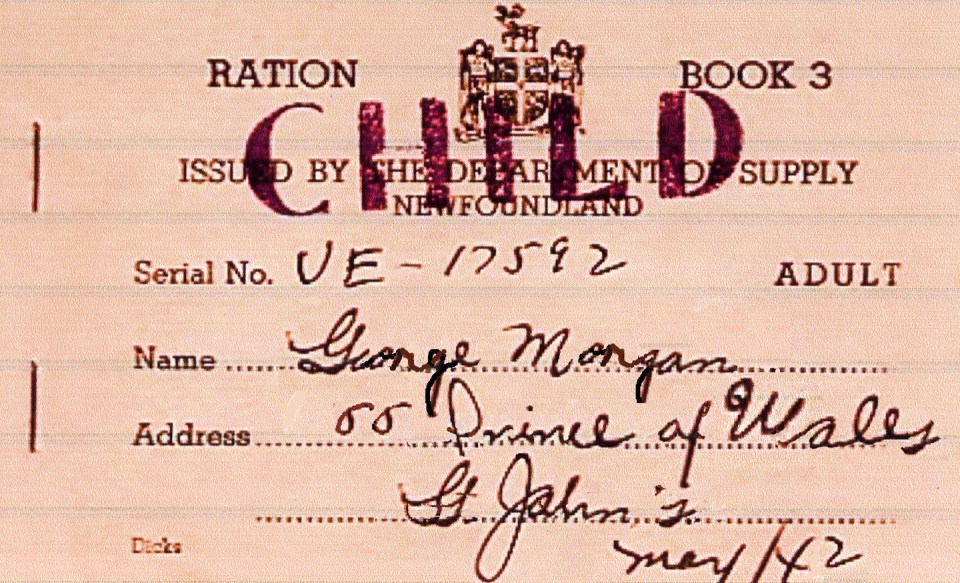 RATION BOOK 3
CHILD
ISSUED BY THE DEPARTMENT OF SUPPLY
NEWFOUNDLAND
Serial No. UE-17592 ADULT
Name George Morgan
Address 55 Prince of Wales
St John's
Dicks May/42